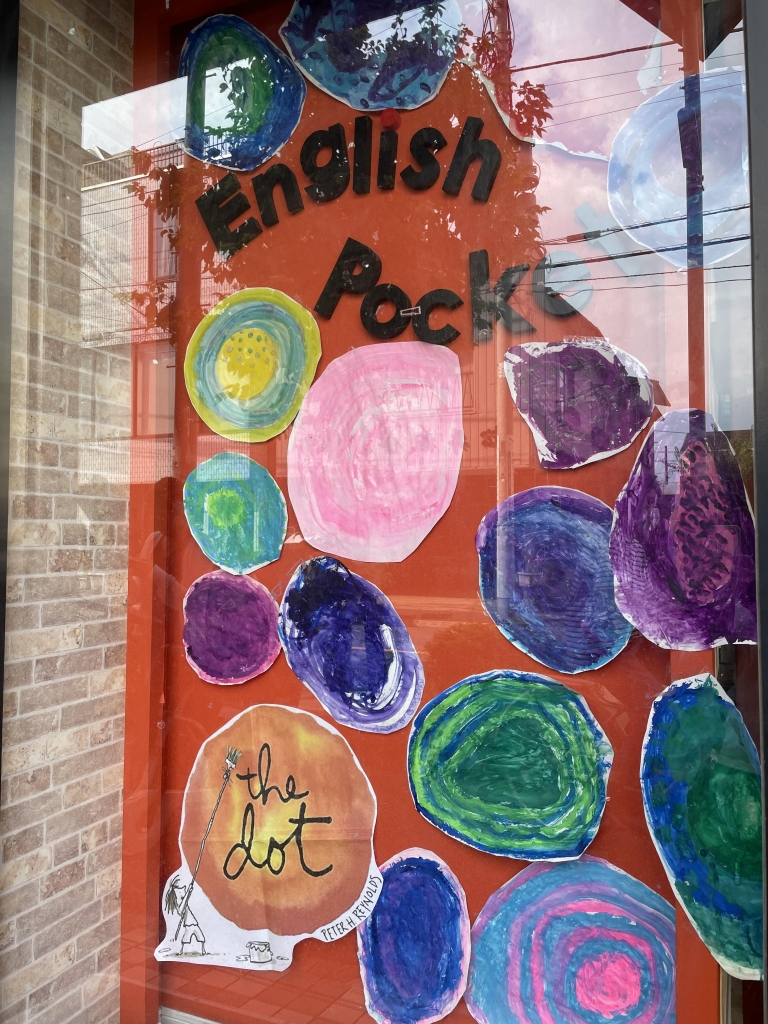 English
Pocket
the
dot
PETER H. REYNOLDS